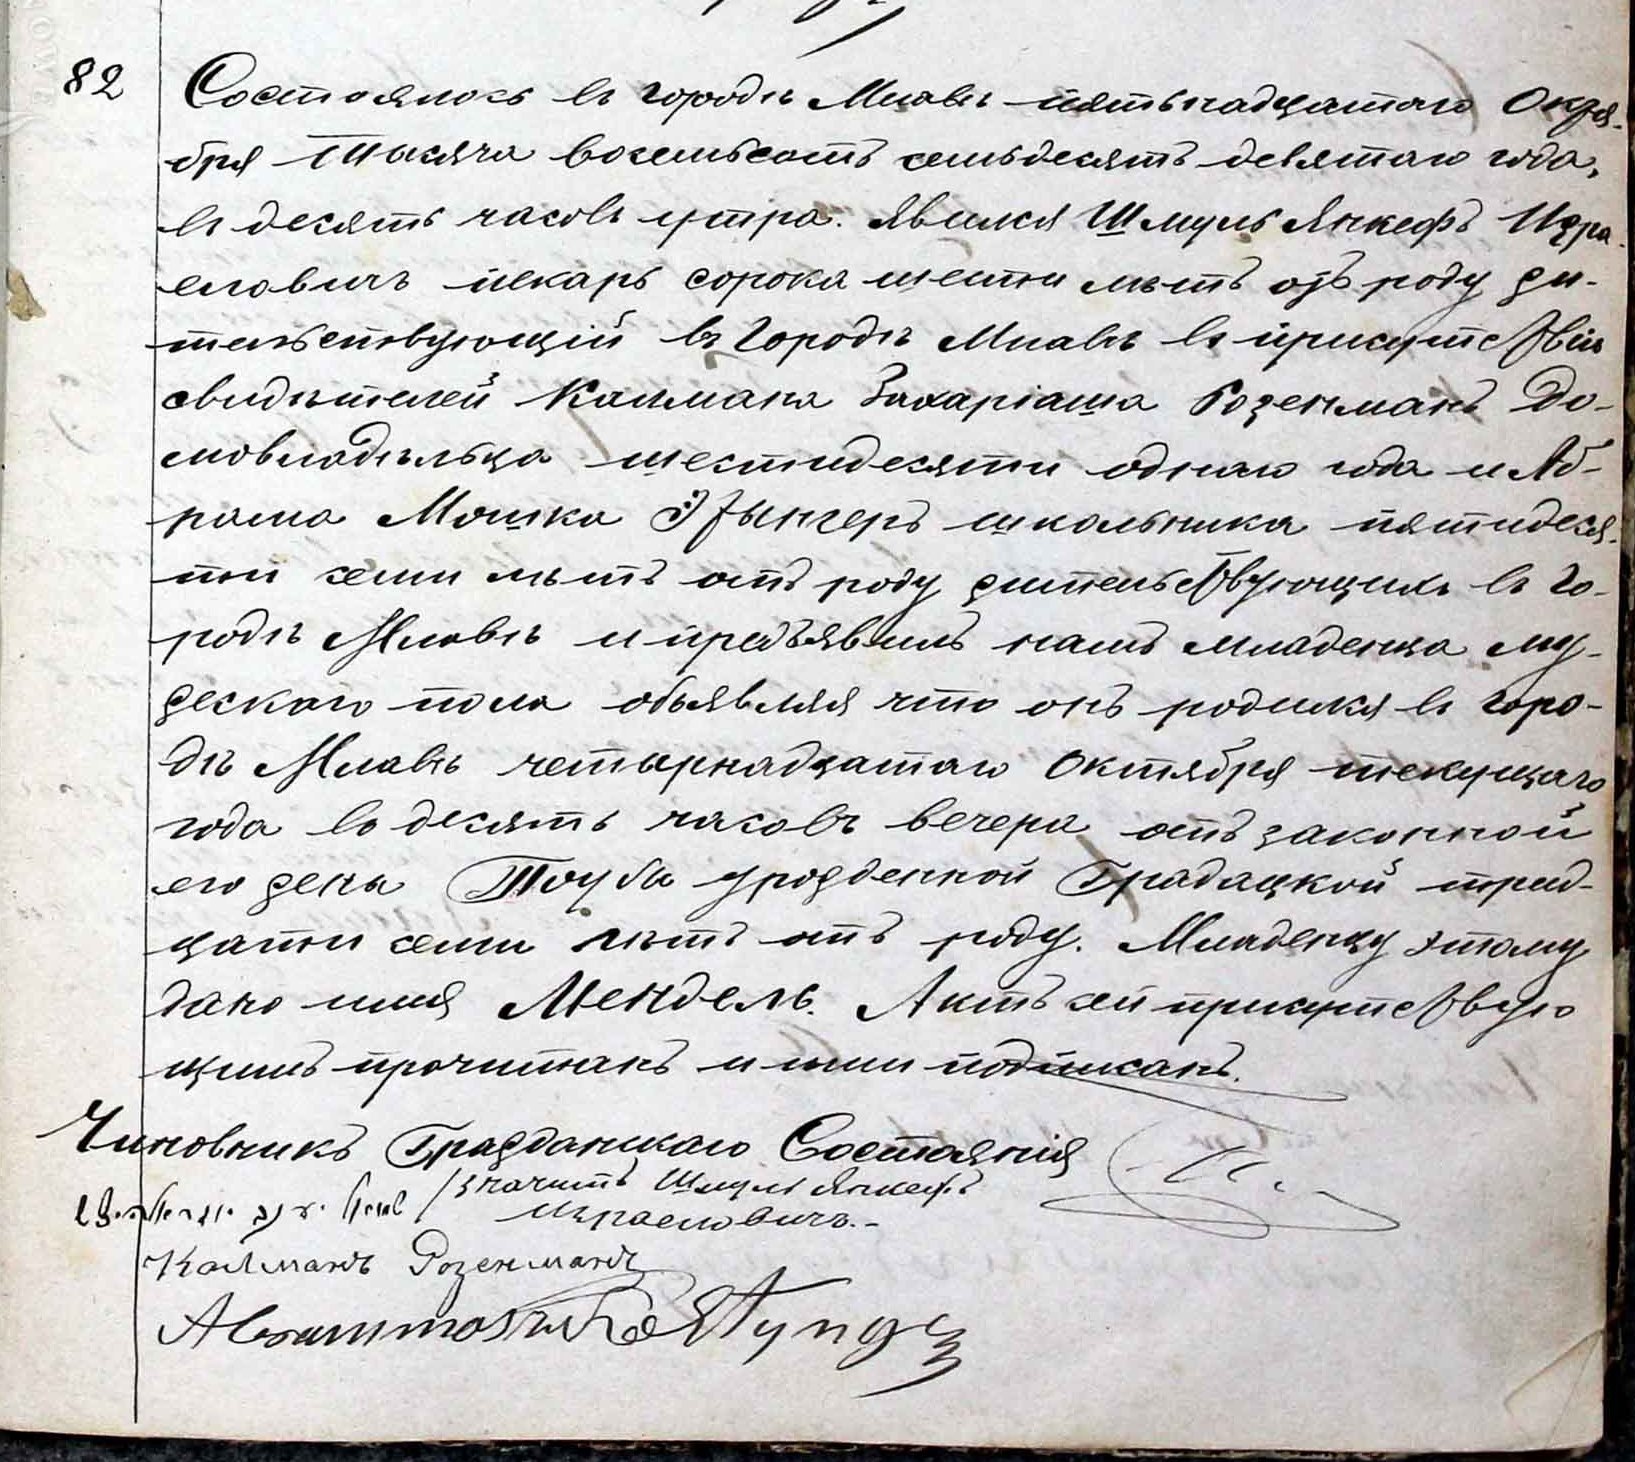 82 Состоялось въ городѣ Млавѣ пятьнадцатаго Октя-
бря тысяча восемьсотъ семьдесятъ девятаго года,
въ десять часовъ утра. явился Шмуль Янкефъ Изра-
еловичъ пекарь сорока шести лѣтъ отъ роду жи-
тельствующій въ городѣ Млавѣ въ присутствіи
свидѣтелей Калмана Захаріаша Розенманъ До-
мовладѣльца шестидесяти одного года и Аб-
рама Мошка Этынгеръ школьника пятидеся-
ти семи лѣтъ отъ роду жительствующихъ въ го-
родѣ Млавѣ и предъявилъ намъ младенца му-
жескаго пола объявляя что онъ родился въ горо-
дѣ Млавѣ четырнадцатаго Октября текущаго
года въ десять часовъ вечера отъ законной
его жены Тоубы урожденной Градацкой трид-
цати семи лѣтъ отъ роду. Младенцу этому
дано имя Мендель. Актъ сей присутствую
щимъ прочитанъ и ими подписанъ.
Чиновникъ Гражданскаго Состоянія
שמואל יעקב / значитъ Шмуль Янкефъ
Израеловичъ.-
Калманъ Розенманъ